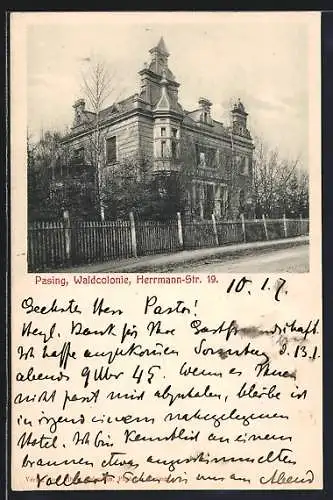 Pasing, Waldcolonie, Herrmann-Str. 19.
10.1.7.
Geehrter Herr Pastor!
Herzl. Dank für Ihre Gastfreundschaft.
Ich hoffe anzukommen Sonntag d. 13.1.
abends 9 Uhr 45. Wenn es Ihnen
nicht passt mich abzuholen, bleibe ich
in irgend einem nahegelegenen
Hotel. Ich bin Kenntlich an einem
braunen etwas
Vollbart. Sehen wir uns am Abend